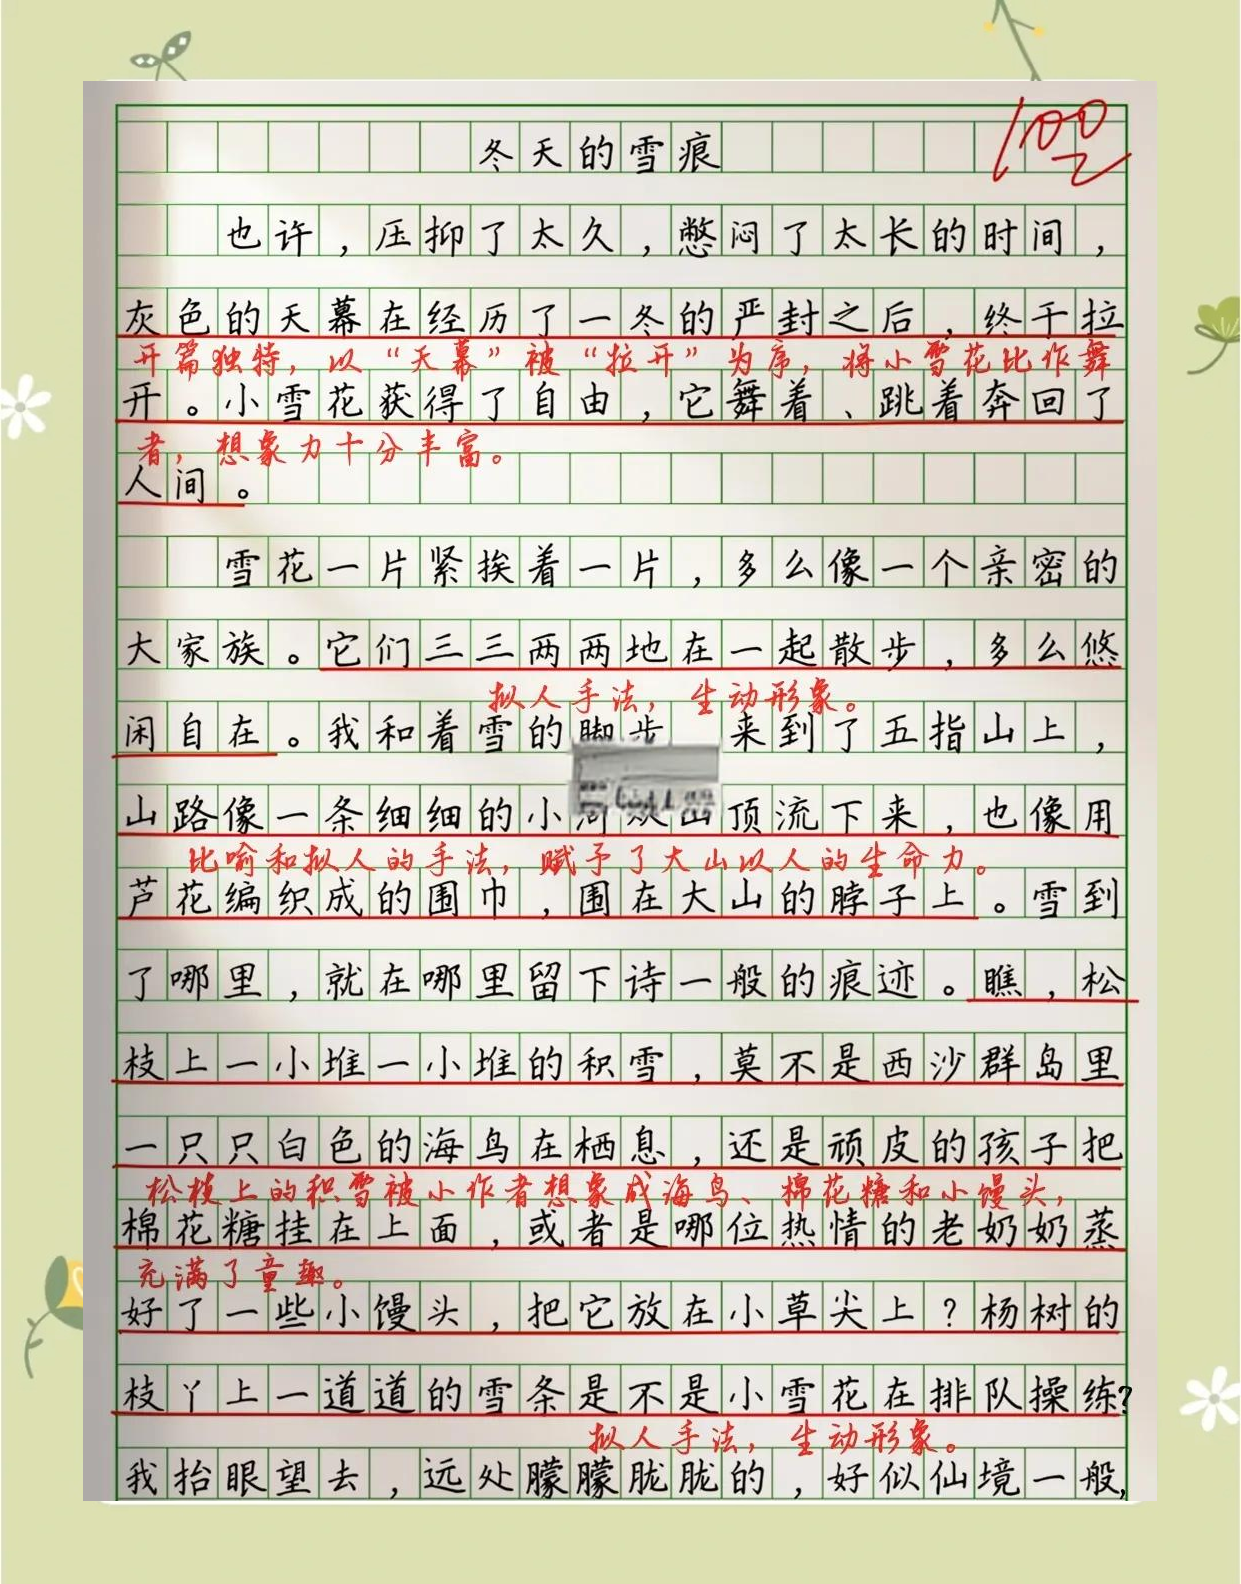 100
冬天的雪痕
也许，压抑了太久，憋闷了太长的时间，
灰色的天幕在经历了一冬的严封之后，终于拉
开篇独特，以“天幕”被“拉开”为序，将小雪花比作舞
开。小雪花获得了自由，它舞着、跳着奔回了
者，想象力十分丰富。
人间。
雪花一片紧挨着一片，多么像一个亲密的
大家族。它们三三两两地在一起散步，多么悠
拟人手法，生动形象。
闲自在。我和着雪的脚步 来到了五指山上，
山路像一条细细的小河从山顶流下来，也像用
比喻和拟人的手法，赋予了大山以人的生命力。
芦花编织成的围巾，围在大山的脖子上。雪到
了哪里，就在哪里留下诗一般的痕迹。瞧，松
枝上一小堆一小堆的积雪，莫不是西沙群岛里
一只只白色的海鸟在栖息，还是顽皮的孩子把
松枝上的积雪被小作者想象成海鸟、棉花糖和小馒头，
棉花糖挂在上面，或者是哪位热情的老奶奶蒸
充满了童趣。
好了一些小馒头，把它放在小草尖上？杨树的
枝丫上一道道的雪条是不是小雪花在排队操练？
拟人手法，生动形象。
我抬眼望去，远处朦朦胧胧的，好似仙境一般，